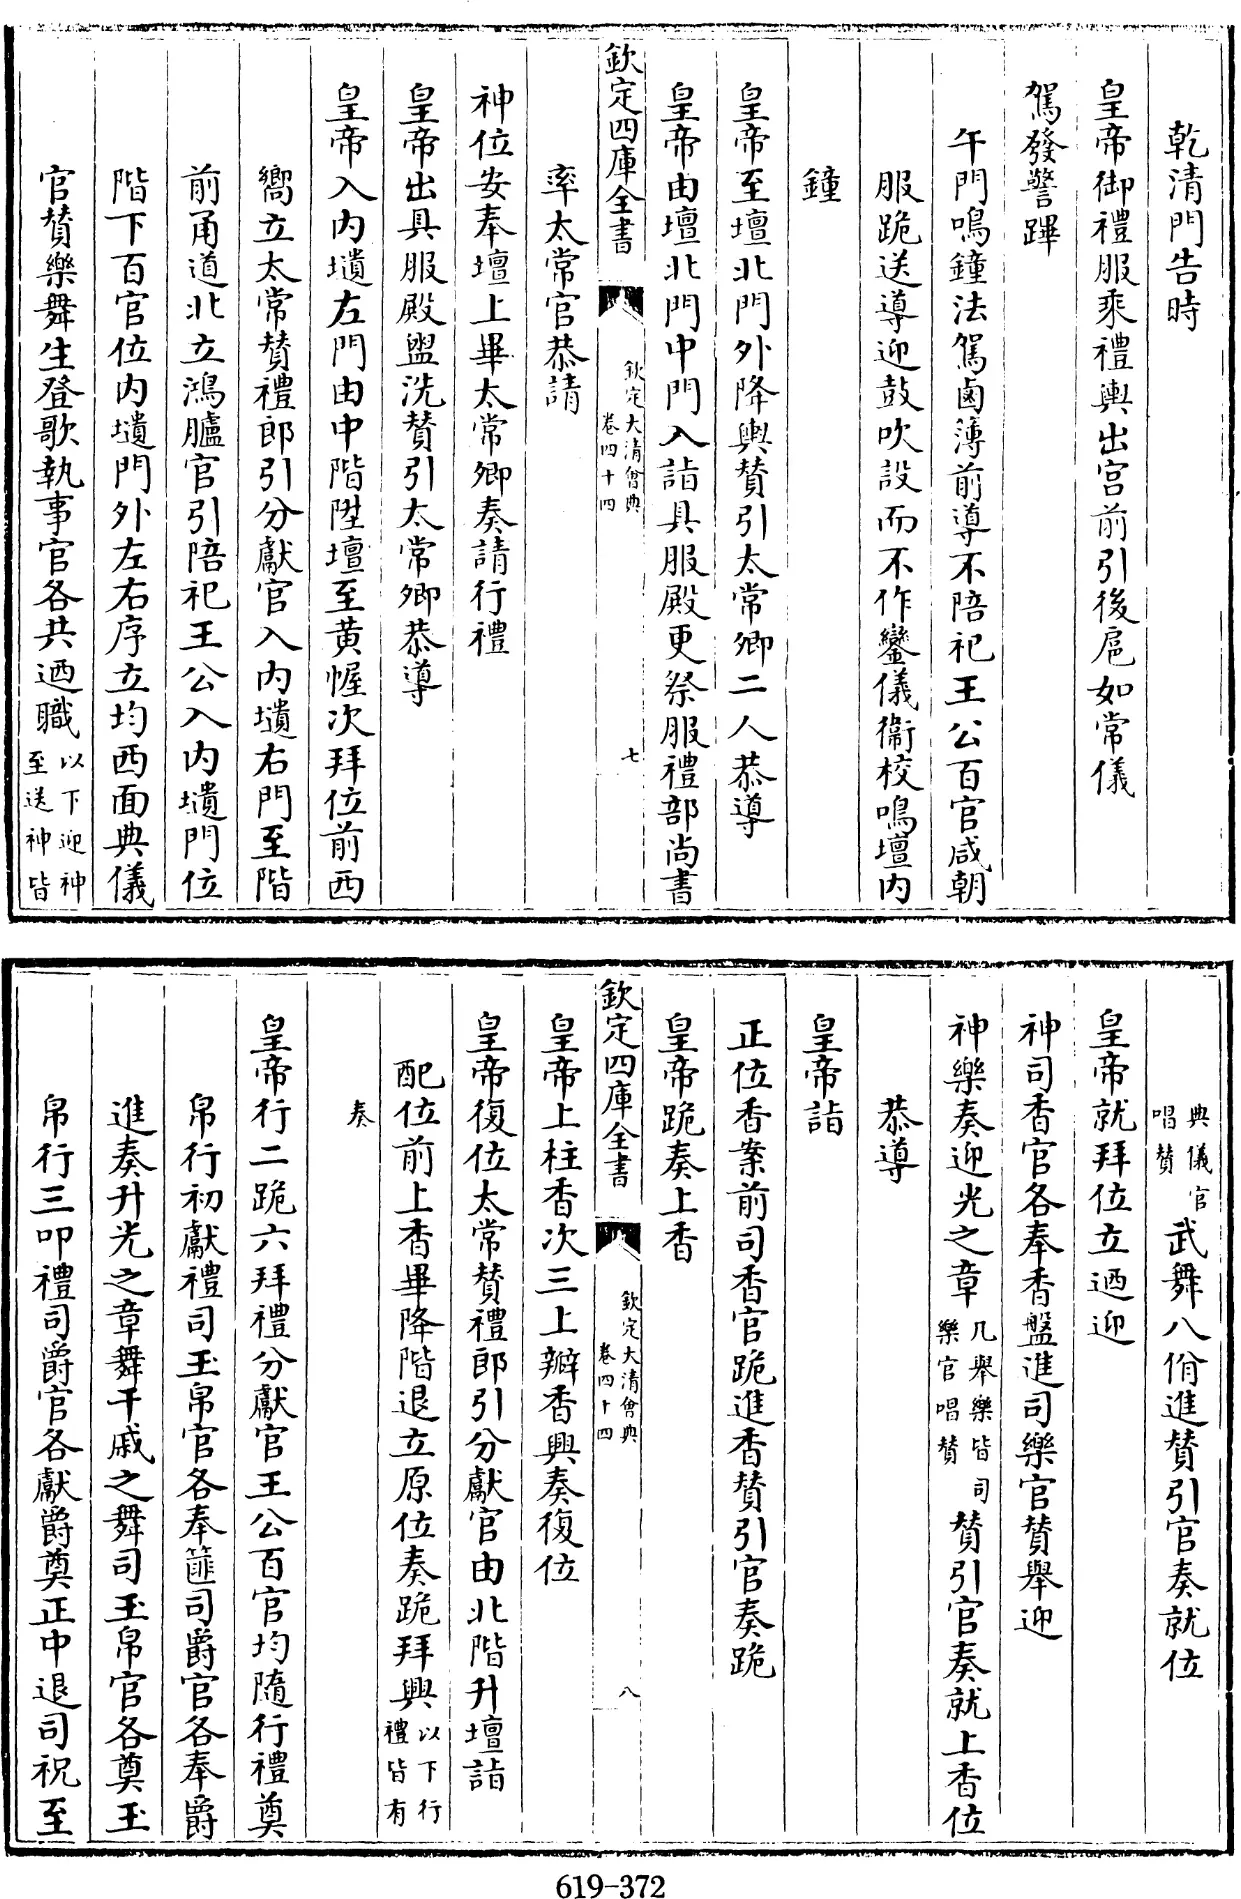 乾清門告時
皇帝御禮服乘禮輿出宫前引後扈如常儀
駕發警蹕
午門鳴鐘法駕鹵簿前導不陪祀王公百官咸朝
服跪送導迎鼓吹設而不作鑾儀衛校鳴壇内
鐘
皇帝至壇北門外降輿贊引太常卿二人恭導
皇帝由壇北門中門入詣具服殿更祭服禮部尚書
欽定四庫全書
欽定大清會典
卷四十四
七
率太常官恭請
神位安奉壇上畢太常卿奏請行禮
皇帝出具服殿盥洗贊引太常卿恭導
皇帝入内壝左門由中階陞壇至黄幄次拜位前西
嚮立太常贊禮郎引分獻官入内壝右門至階
前甬道北立鴻臚官引陪祀王公入内壝門位
階下百官位内壝門外左右序立均西面典儀
官贊樂舞生登歌執事官各共迺職以下迎神
至送神皆
典儀官
唱贊武舞八佾進贊引官奏就位
皇帝就拜位立迺迎
神司香官各奉香盤進司樂官贊舉迎
神樂奏迎光之章凡舉樂皆司
樂官唱贊贊引官奏就上香位
恭導
皇帝詣
正位香案前司香官跪進香贊引官奏跪
皇帝跪奏上香
欽定四庫全書
欽定大清會典
卷四十四
八
皇帝上柱香次三上瓣香興奏復位
皇帝復位太常贊禮郎引分獻官由北階升壇詣
配位前上香畢降階退立原位奏跪拜興以下行
禮皆有
奏
皇帝行二跪六拜禮分獻官王公百官均隨行禮奠
帛行初獻禮司玉帛官各奉篚司爵官各奉爵
進奏升光之章舞干戚之舞司玉帛官各奠玉
帛行三叩禮司爵官各獻爵奠正中退司祝至
619-372